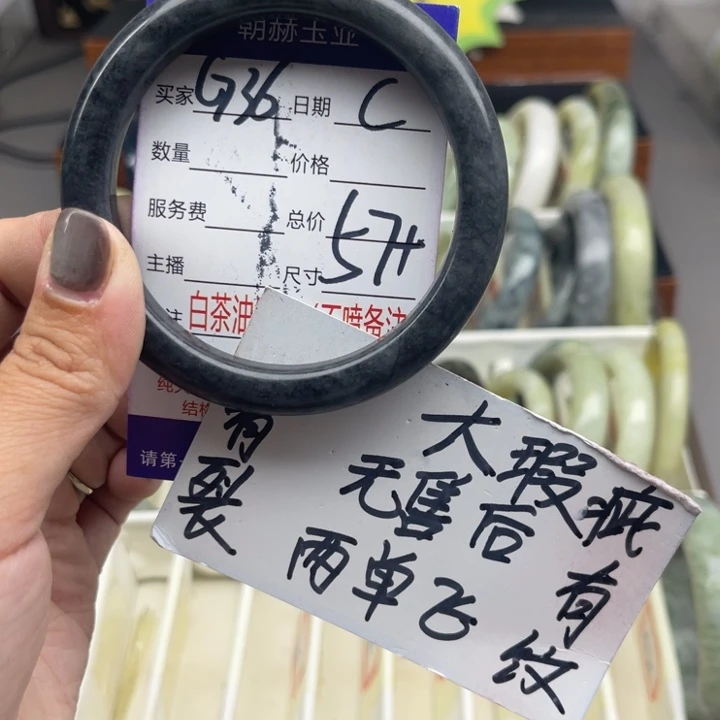 朝赫玉业
买家 G36 日期 C
数量 价格
服务费 总价
主播 尺寸 57H
白茶油 不喷备注
结构
请第一
大瑕疵
无售后
两单飞
有纹
有裂